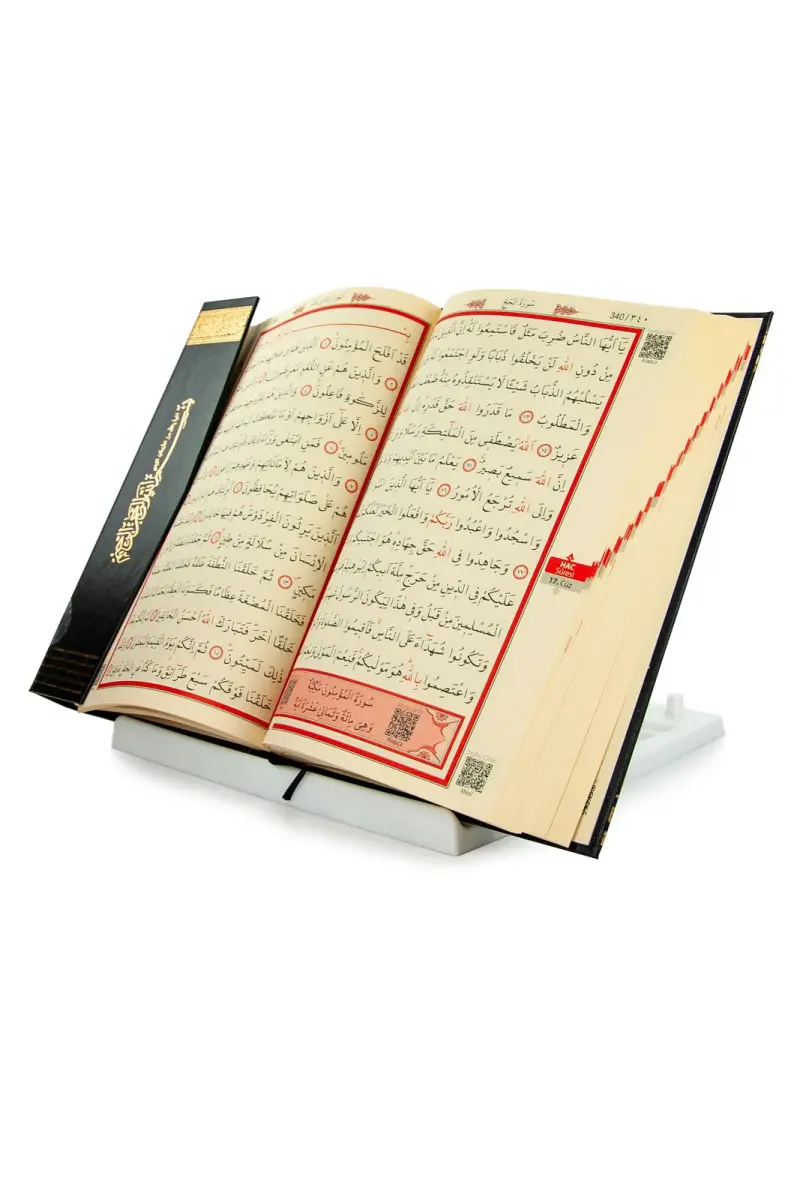 سُورَةُ الْحَجِّ
340/٣٤٠
يَٓا اَيُّهَا النَّاسُ ضُرِبَ مَثَلٌ فَاسْتَمِعُوا لَهُ اِنَّ الَّذ۪ينَ
مِنْ دُونِ اللّٰهِ لَنْ يَخْلُقُوا ذُبَابًا وَلَوِ اجْتَمَعُوا لَهُ
يَسْلُبْهُمُ الذُّبَابُ شَيْـًٔا لَا يَسْتَنْقِذُوهُ مِنْهُ ضَعُفَ
وَالْمَطْلُوبُ ٧٣ مَا قَدَرُوا اللّٰهَ حَقَّ قَدْرِه۪ اِنَّ
عَز۪يزٌ ٧٤ اَللّٰهُ يَصْطَف۪ي مِنَ الْمَلٰٓئِكَةِ رُسُلًا وَمِنَ
اِنَّ اللّٰهَ سَم۪يعٌ بَص۪يرٌ ٧٥ يَعْلَمُ مَا بَيْنَ اَيْد۪يهِمْ
وَاِلَى اللّٰهِ تُرْجَعُ الْاُمُورُ ٧٦ يَٓا اَيُّهَا الَّذ۪ينَ
وَاسْجُدُوا وَاعْبُدُوا رَبَّكُمْ وَافْعَلُوا الْخَيْرَ لَعَلَّكُمْ
٧٧ وَجَاهِدُوا فِي اللّٰهِ حَقَّ جِهَادِه۪ هُوَ اجْتَبٰيكُمْ
عَلَيْكُمْ فِي الدّ۪ينِ مِنْ حَرَجٍ مِلَّةَ اَب۪يكُمْ اِبْرٰه۪يمَ
الْمُسْلِم۪ينَ مِنْ قَبْلُ وَف۪ي هٰذَا لِيَكُونَ الرَّسُولُ
وَتَكُونُوا شُهَدَٓاءَ عَلَى النَّاسِ فَاَق۪يمُوا الصَّلٰوةَ
وَاعْتَصِمُوا بِاللّٰهِ هُوَ مَوْلٰيكُمْ فَنِعْمَ الْمَوْلٰى وَنِعْمَ
سُورَةُ الْمُؤْمِنُونَ مَكِّيَّةٌ
وَهِيَ مِائَةٌ وَثَمَانِيَ عَشْرَةَ اٰيَةً
HAC
Sûresi
17. Cüz
Meal
قَدْ اَفْلَحَ الْمُؤْمِنُونَ ١ اَلَّذ۪ينَ
٢ وَالَّذ۪ينَ هُمْ عَنِ اللَّغْوِ مُعْرِضُونَ
لِلزَّكٰوةِ فَاعِلُونَ ٤ وَالَّذ۪ينَ هُمْ
٥ اِلَّا عَلٰٓى اَزْوَاجِهِمْ اَوْ مَا مَلَكَتْ
مَلُوم۪ينَ ٦ فَمَنِ ابْتَغٰى وَرَٓاءَ
٧ وَالَّذ۪ينَ هُمْ لِاَمَانَاتِهِمْ وَعَهْدِهِمْ
هُمْ عَلٰى صَلَوَاتِهِمْ يُحَافِظُونَ ٩
اَلَّذ۪ينَ يَرِثُونَ الْفِرْدَوْسَ هُمْ ف۪يهَا
الْاِنْسَانَ مِنْ سُلَالَةٍ مِنْ ط۪ينٍ
مَك۪ينٍ ١٣ ثُمَّ خَلَقْنَا النُّطْفَةَ عَلَقَةً
فَخَلَقْنَا الْمُضْغَةَ عِظَامًا فَكَسَوْنَا
خَلْقًا اٰخَرَ فَتَبَارَكَ اللّٰهُ اَحْسَنُ الْخَالِق۪ينَ
ذٰلِكَ لَمَيِّتُونَ ١٥ ثُمَّ اِنَّكُمْ يَوْمَ الْقِيٰمَةِ
خَلَقْنَا فَوْقَكُمْ سَبْعَ طَرَٓائِقَ وَمَا كُنَّا عَنِ الْخَلْقِ